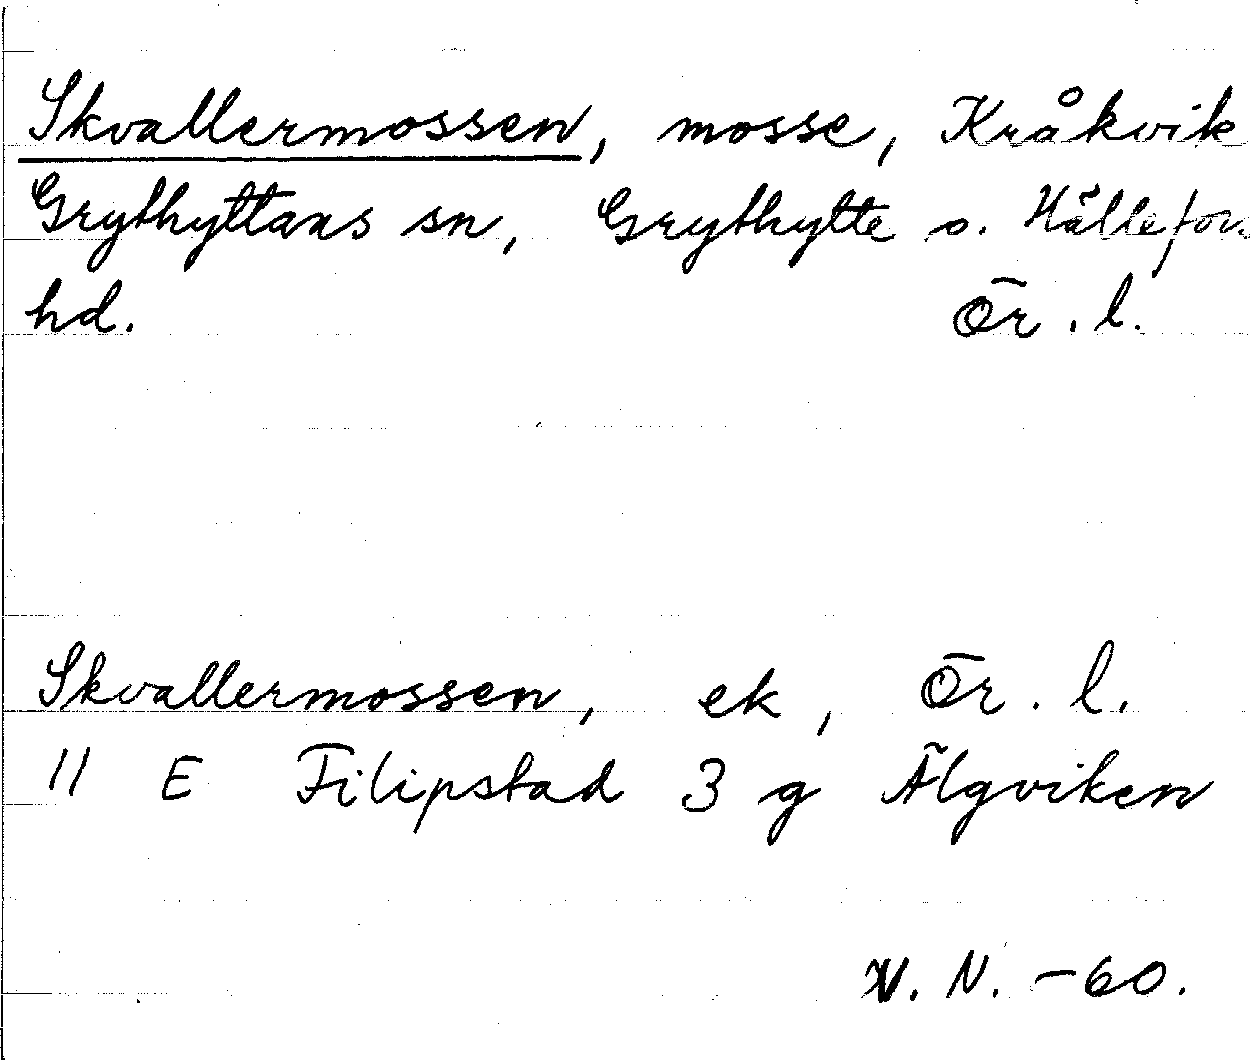 Skvallermossen, mosse, Kråkvik
Grythyttans sn, Grythytte o. Hällefors
hd. Ör. l.
Skvallermossen, ek, Ör. l.
11 E Filipstad 3 g Älgviken
N. -60.